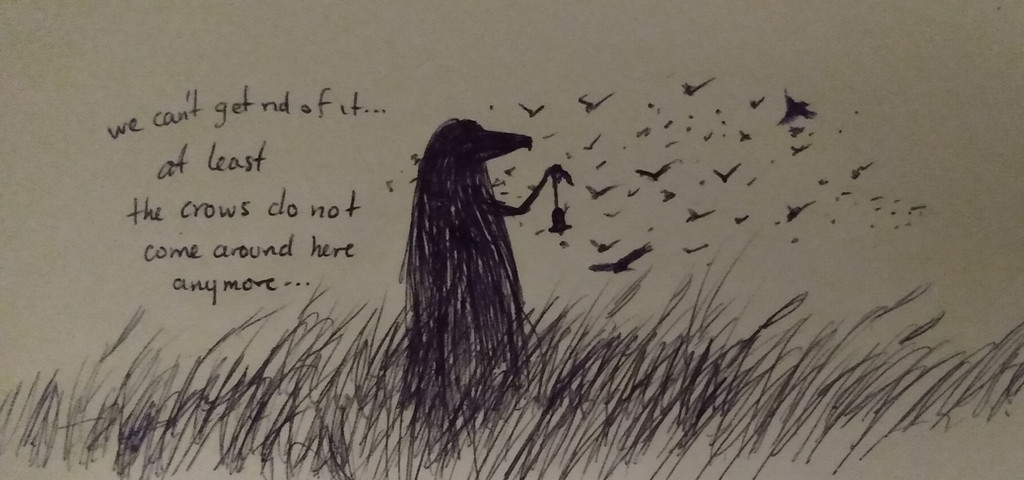 we can't get rid of it...
at least
the crows do not
come around here
anymore...